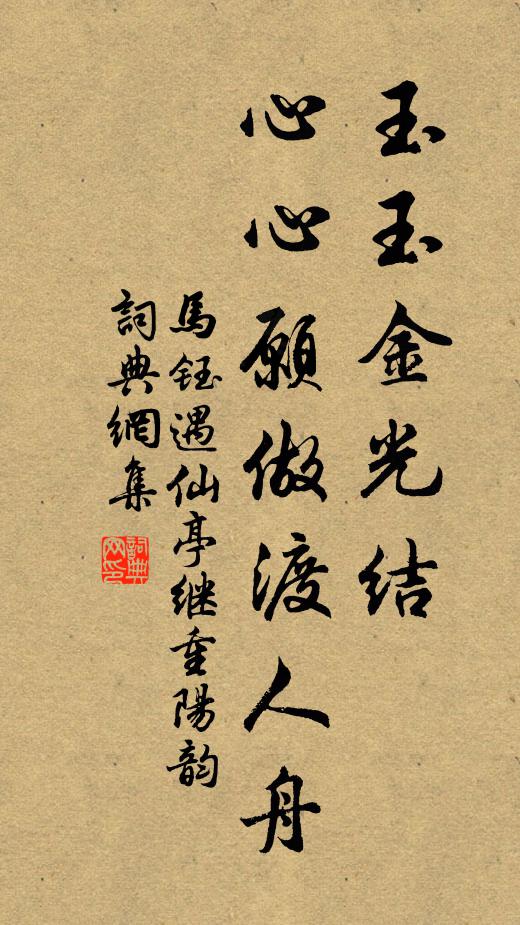 玉玉金光结
心心願做渡人舟
馬鈺遇仙亭继重陽韵
詞典網集
詞典
网印